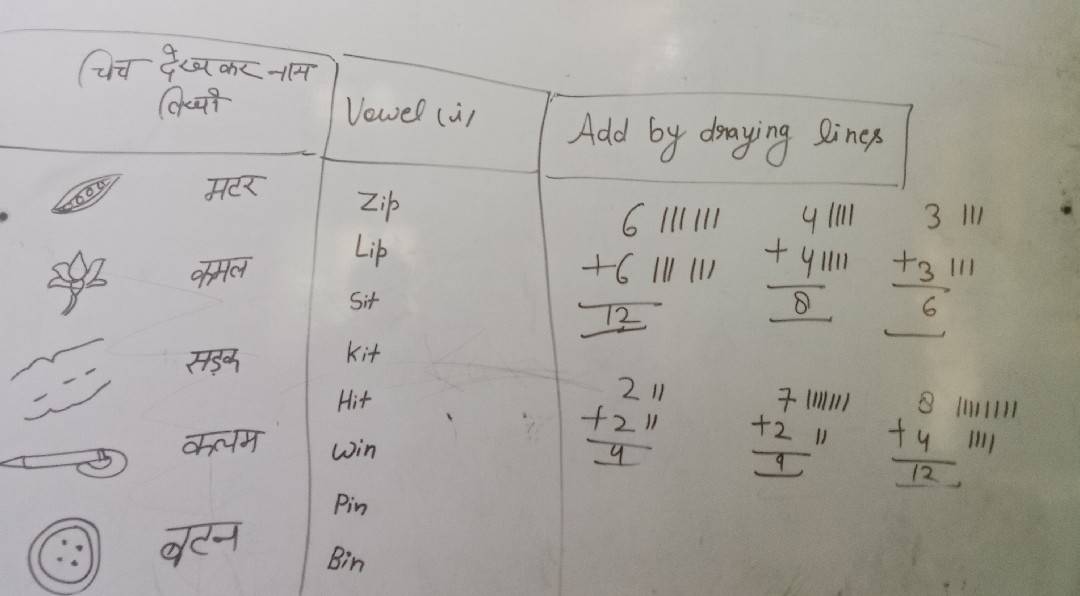 चित्र देखकर नाम
लिखो
मटर
कमल
सड़क
कलम
बटन
Vowel (i)
Zip
Lip
Sit
Kit
Hit
Win
Pin
Bin
Add by draying lines
6 4 3
+6 +4 +3
12 8 6
2 7 8
+2 +2 +4
4 9 12